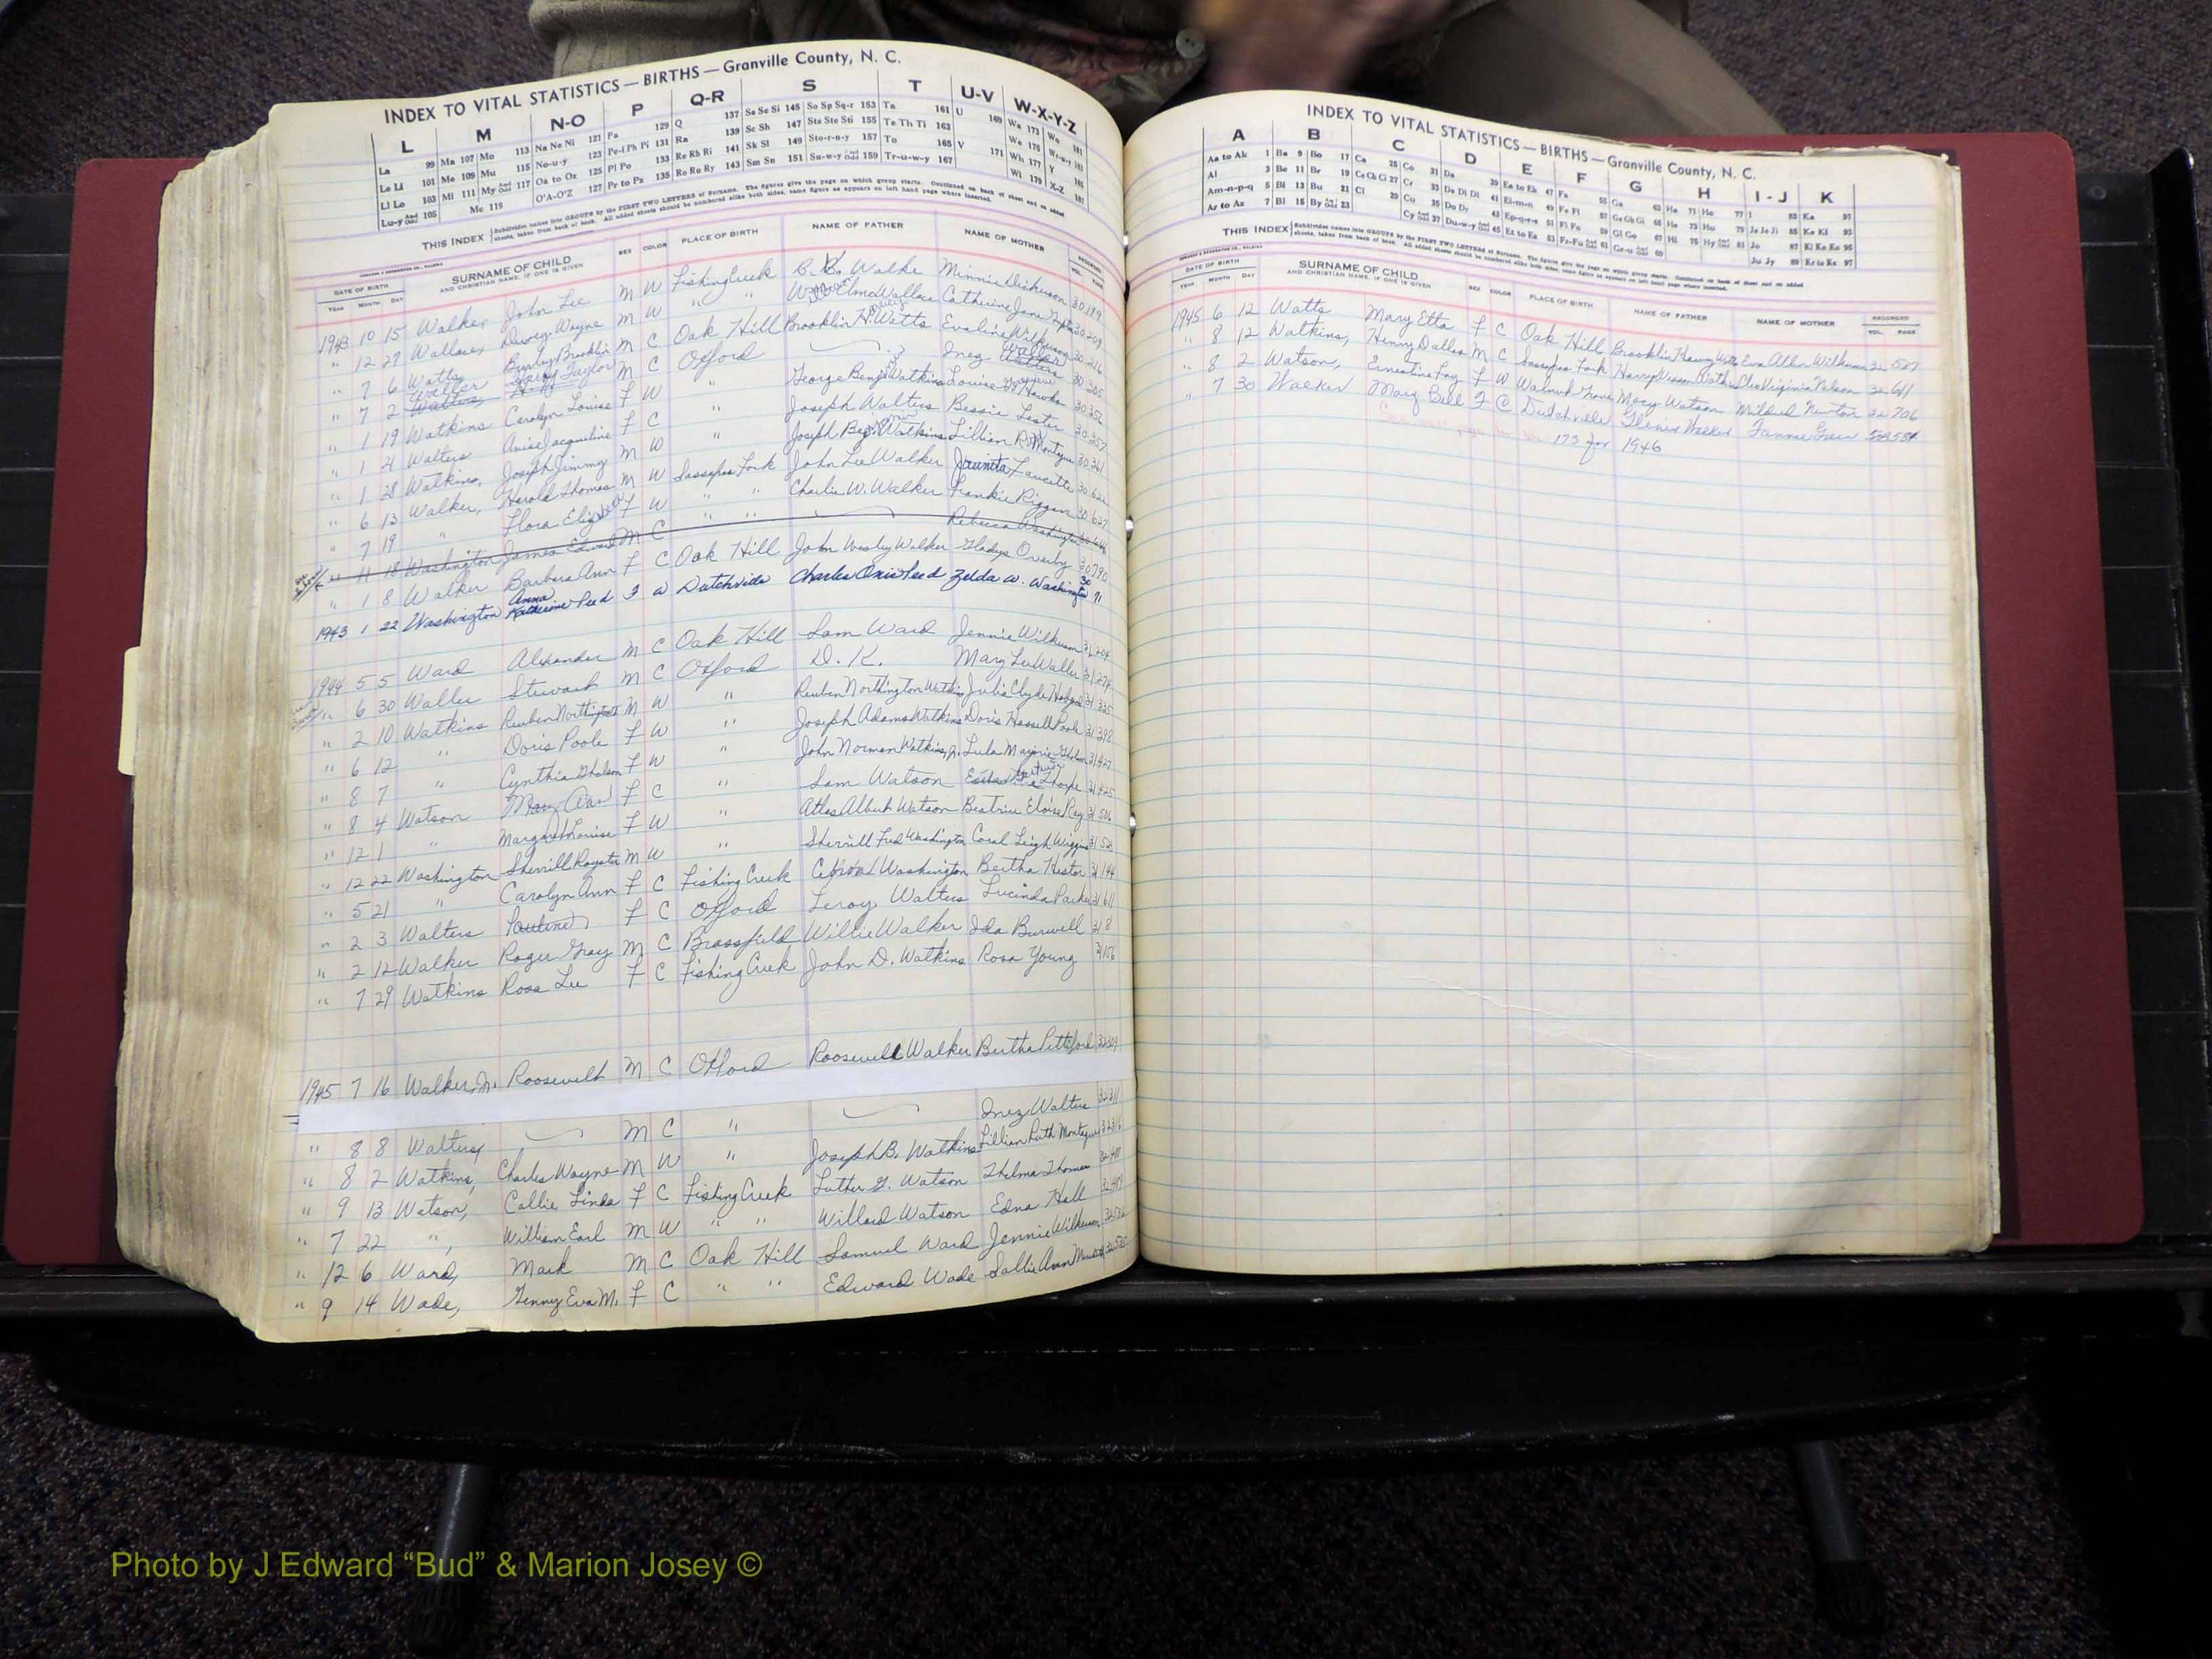 INDEX TO VITAL STATISTICS — BIRTHS — Granville County, N. C.
L M N-O P Q-R S T U-V W-X-Y-Z
La 99 Ma 107 Mo 113 Na Ne Ni 121 Pa 129 Q 137 Sa Se Si 145 So Sp Sq-r 153 Ta 161 U 169 Wa 173 Wo 181
Le Li 101 Me 109 Mu 115 No-u-y 123 Pe-f Ph Pi 131 Ra 139 Sc Sh 147 Sta Ste Sti 155 Te Th Ti 163
Ll Lo 103 Mi 111 My And Odd 117 Oa to Oz 125 Pl Po 133 Re Rh Ri 141 Sk Sl 149 Sto-r-n-y 157 To 165 V 171 Wh 177 Y 185
Lu-y And Odd 105 Mc 119 O'A-O'Z 127 Pr to Pz 135 Ro Ru Ry 143 Sm Sn 151 Su-w-y And Odd 159 Tr-u-w-y 167 Wi 179 X-Z 187
THIS INDEX Subdivides names into GROUPS by the FIRST TWO LETTERS of Surname. The figures give the page on which group starts. Continued on back of sheet and on added
sheets, taken from back of book. All added sheets should be numbered alike both sides, same figure as appears on left hand page where inserted.
DATE OF BIRTH SURNAME OF CHILD SEX COLOR PLACE OF BIRTH NAME OF FATHER NAME OF MOTHER RECORDED
YEAR MONTH DAY AND CHRISTIAN NAME, IF ONE IS GIVEN VOL. PAGE
1943 10 15 Walker John Lee M W Fishing Creek B. B. Walke Minnie Dickerson 30 189
" 12 27 Wallace, Dwayne Wayne M W " " Wallace Catherine Jane 30 209
" 7 6 Watts Burley Brooklin M C Oak Hill Brooklin H. Watts Evaline Wilkerson 30 216
" 7 2 Waller Taylor M C Oxford Inez Waller 30 305
" 1 19 Watkins Carolyn Louise F W " George Benj. Watkins Louise Hawkins 30 352
" 1 21 Walters Anise Jacqueline F C " Joseph Walters Bessie Lester 30 357
" 1 28 Watkins, Joseph Jimmy M W " Joseph Benj. Watkins Lillian R. Montague 30 361
" 6 13 Walker, Harold Thomas M W Sassafras Fork John Lee Walker Juanita Faucette 30 621
" 7 19 " Flora Elizabeth F W " " Charlie W. Walker Frankie Riggan 30 627
" 11 18 Washington James Edward M C " " Rebecca Washington
" 1 8 Walker Barbara Ann F C Oak Hill John Wesley Walker Gladys Overby 30 790
1943 1 22 Washington Anna Katherine Peed F W Dutchville Charles Oxie Peed Zelda W. Washington 30 91
1944 5 5 Ward Alexander M C Oak Hill Sam Ward Jennie Wilkerson 31 204
" 6 30 Waller Stewart M C Oxford D. K. Mary Lee Waller 31 274
" 2 10 Watkins Reuben Northington M W " Reuben Northington Watkins Julia Clyde 31 325
" 6 12 " Doris Poole F W " Joseph Adams Watkins Doris Hassell Poole 31 398
" 8 7 " Cynthia Gholson F W " John Norman Watkins, Jr. Lula Marjorie Gholson 31 427
" 8 4 Watson Mary Ann F C " Sam Watson Thorpe 31 425
" 12 1 " Margaret Louise F W " Atlas Albert Watson Beatrice Eloise Ray 31 506
" 12 22 Washington Sherrill Royster M W " Sherrill Fred Washington Coral Leigh Wiggins 31 52
" 5 21 " Carolyn Ann F C Fishing Creek Washington Bertha Hester 31 144
" 2 3 Walters Pauline F C Oxford Leroy Walters Lucinda Parker 31 611
" 2 12 Walker Roger Gray M C Brassfield Willie Walker Ida Burwell 31 8
" 7 29 Watkins Rosa Lee F C Fishing Creek John D. Watkins Rosa Young 31 156
1945 7 16 Walker, Jr. Roosevelt M C Oxford Roosevelt Walker Bertha Pettiford 32 309
" 8 8 Walters, M C " Inez Walters 32 311
" 8 2 Watkins, Charles Wayne M W " Joseph B. Watkins Lillian Ruth Montague 32 316
" 9 13 Watson, Callie Linda F C Fishing Creek Luther G. Watson Thelma Thomas
" 7 22 ", William Earl M W " " Willard Watson Edna Hall
" 12 6 Ward, Mark M C Oak Hill Samuel Ward Jennie Wilkerson
" 9 14 Wade, Genny Eva M. F C " " Edward Wade Sallie Ann
INDEX TO VITAL STATISTICS — BIRTHS — Granville County, N. C.
A B C D E F G H I - J K
Aa to Ak 1 Ba 9 Bo 17 Ca 25 Co 31 Da 39 Ea to Ek 47 Fa 55 Ga 63 Ha 71 Ho 77 I 83 Ka 91
Al 3 Be 11 Br 19 Ce Ch Ci 27 Cr 33 De Di Dl 41 El-m-n 49 Fe Fi 57 Ge Gh Gi 65 He 73 Hu 79 Ja Je Ji 85 Ke Kl 93
Am-n-p-q 5 Bi 13 Bu 21 Cl 29 Cu 35 Do Dr 43 Ep-q-r-s 51 Fl Fo 59 Gl Go 67 Hi 75 Hy And Odd 81 Jo 87 Ki Kn Ko 95
Ar to Az 7 Bl 15 By And Odd 23 Cy And Odd 37 Du-w-y And Odd 45 Et to Ez 53 Fr-Fu And Odd 61 Gr-u And Odd 69 Ju Jy 89 Kr to Kz 97
THIS INDEX Subdivides names into GROUPS by the FIRST TWO LETTERS of Surname. The figures give the page on which group starts. Continued on back of sheet and on added
sheets, taken from back of book. All added sheets should be numbered alike both sides, same figure as appears on left hand page where inserted.
DATE OF BIRTH SURNAME OF CHILD SEX COLOR PLACE OF BIRTH NAME OF FATHER NAME OF MOTHER RECORDED
YEAR MONTH DAY AND CHRISTIAN NAME, IF ONE IS GIVEN VOL. PAGE
1945 6 12 Watts Mary Etta F C Oak Hill Brooklin Henry Watts Eva Allen Wilkerson 32 587
" 8 12 Watkins, Henry Dallas M C Sassafras Fork Harry Watkins Cleo Virginia Nelson 32 611
" 8 2 Watson, Ernestine Fay F W Walnut Grove Macy Watson Mildred Newton 32 706
" 7 30 Walker Mary Bell F C Dutchville Walker Fannie
173 for 1946
Photo by J Edward “Bud” & Marion Josey ©